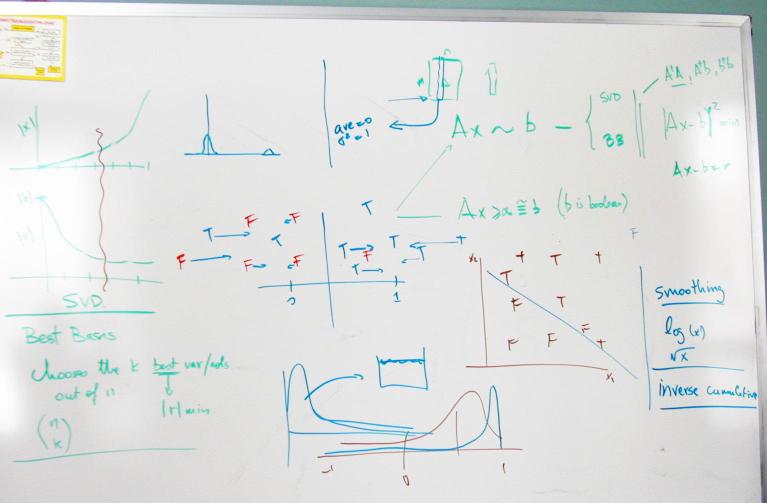 |x|
|b|
|r|
SVD
Best Basis
chooses the k best var/cols
out of n
|r| min
(n k)
ave=0
σ²=1
A
Ax ~ b - { SVD
BB
AᵀA, Aᵀb, bᵀb
|Ax-b|² min
Ax-b=r
Ax ≥ ≅ b (b is boolean)
T
F F
T T
F F F
T T T T
F
T
0 1
x₂
T T T T
F T
F F F T
x₁
F
smoothing
log(x)
√x
inverse cumulative
-1 0 1